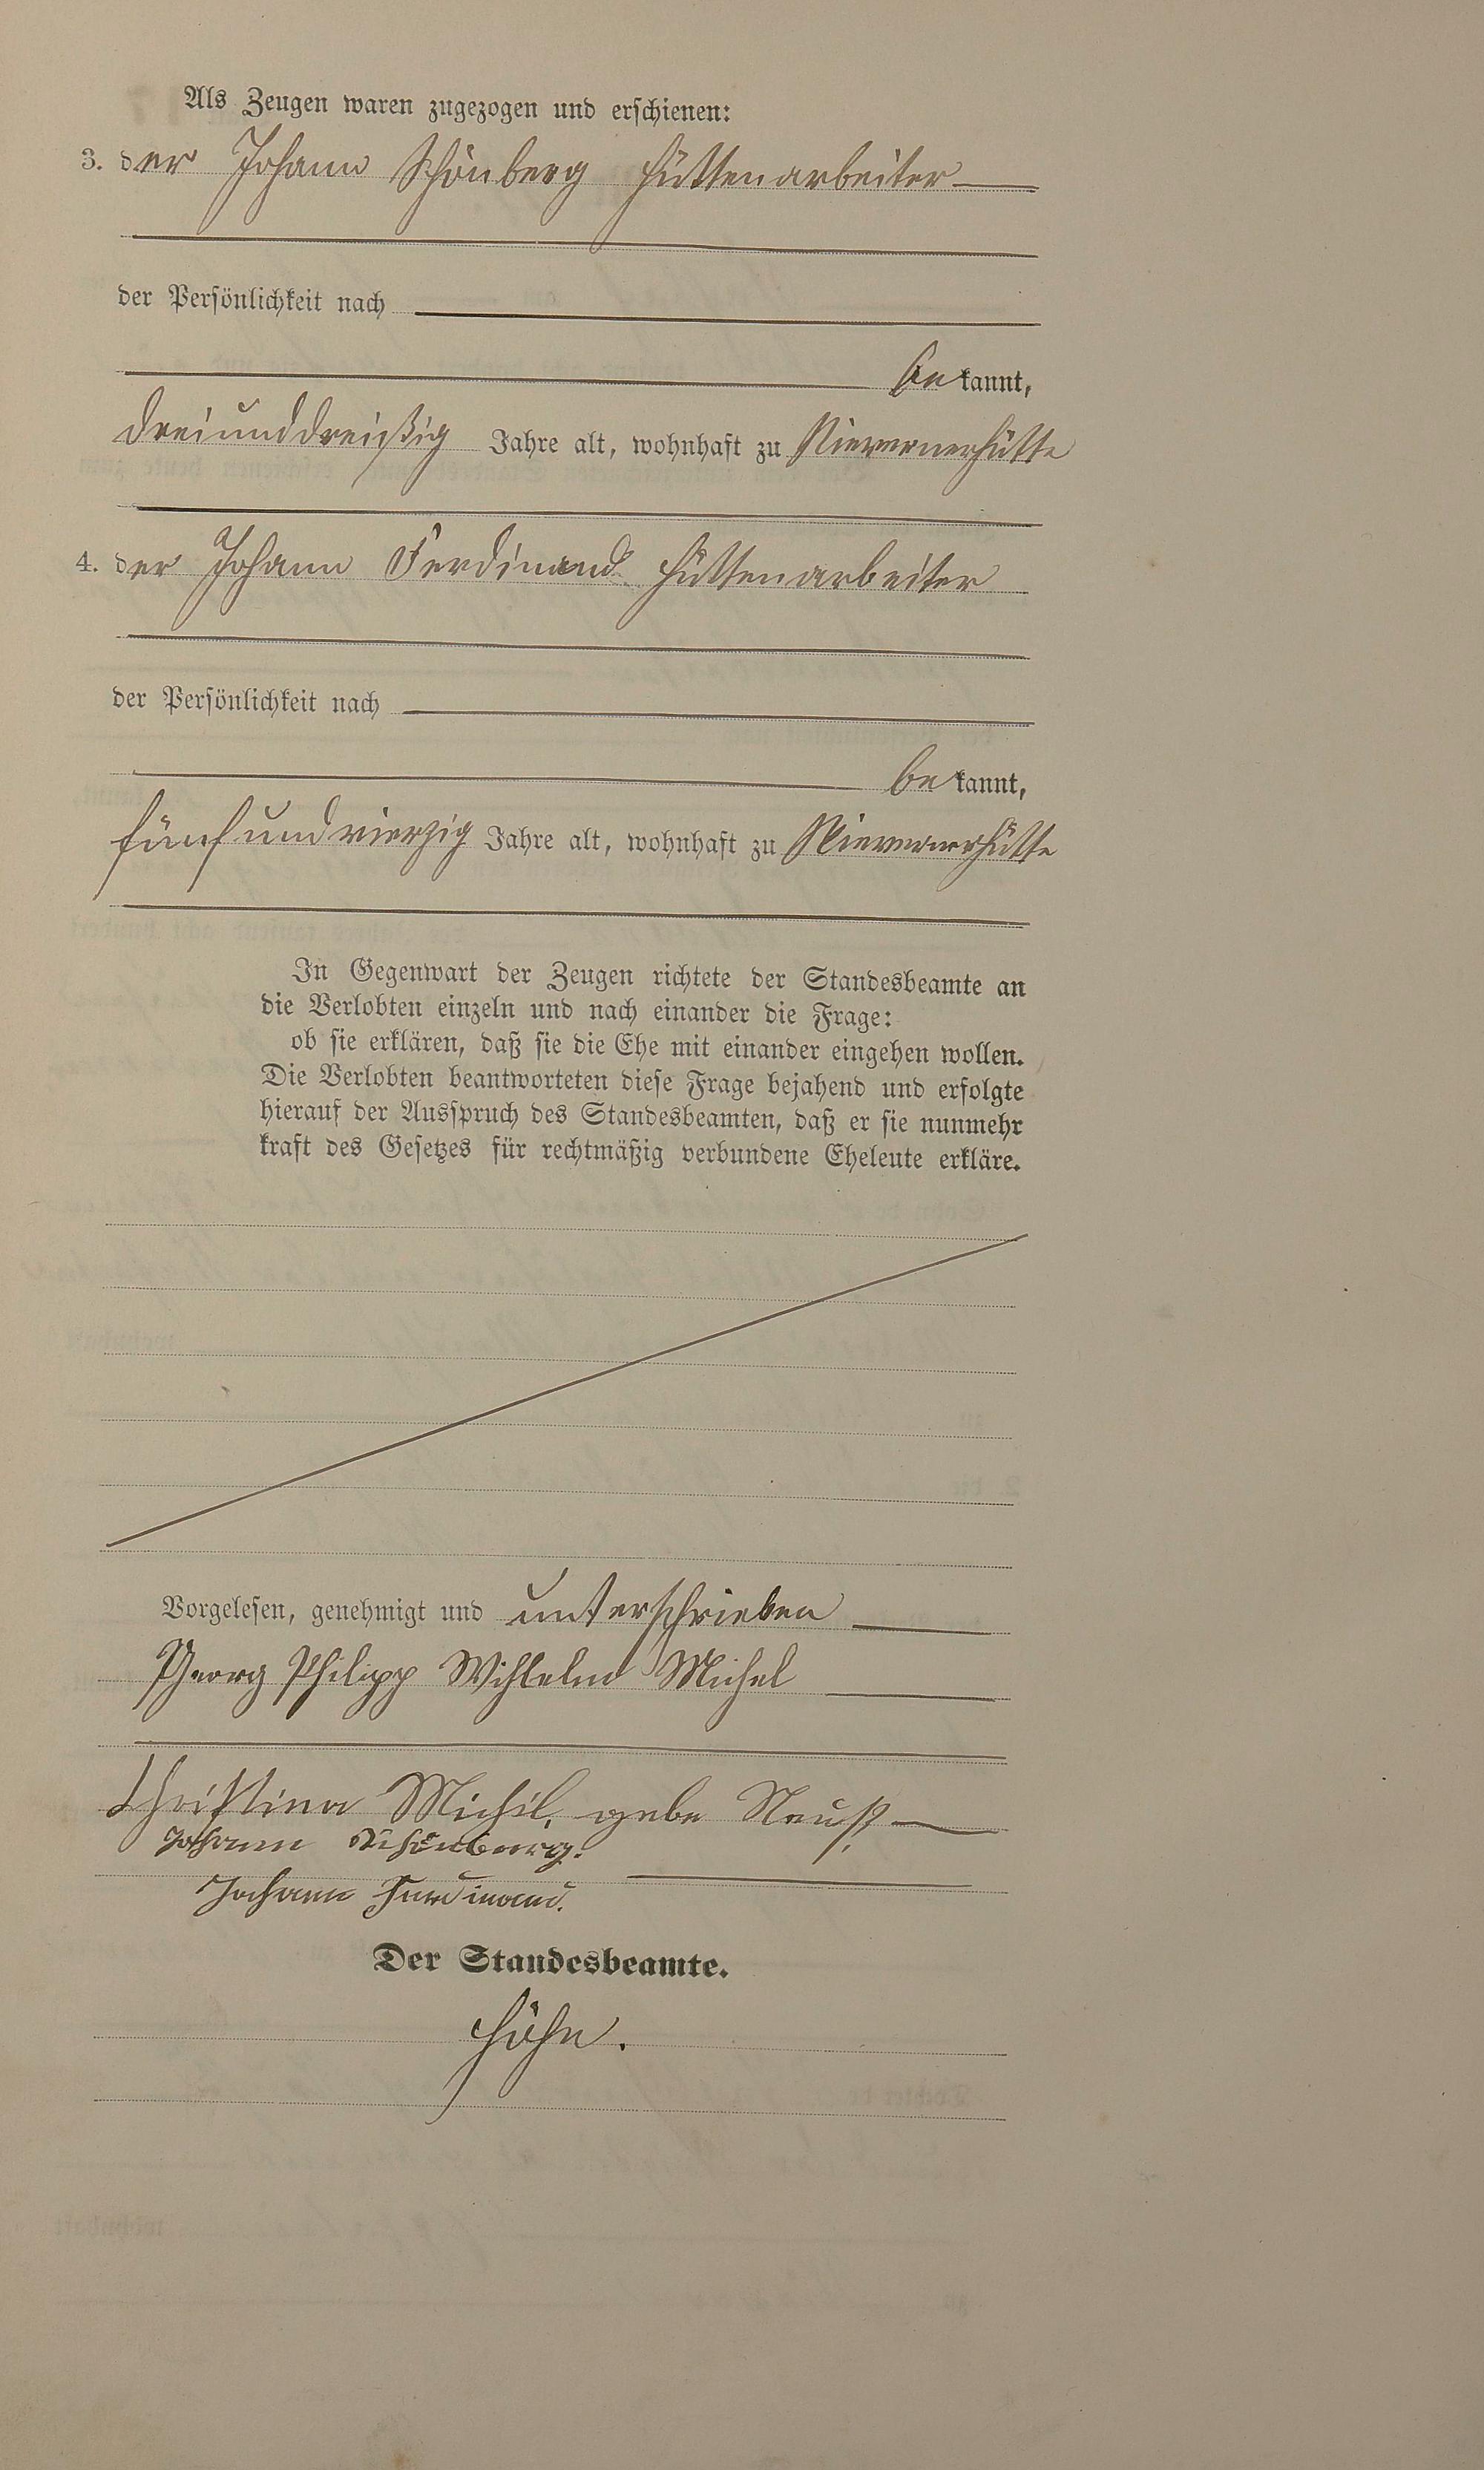 Als Zeugen waren zugezogen und erschienen:
3. der Johann Schönberg Hüttenarbeiter
der Persönlichkeit nach
bekannt,
dreiunddreißig Jahre alt, wohnhaft zu Nievernerhütte
4. der Johann Ferdinand Hüttenarbeiter
der Persönlichkeit nach
bekannt,
fünfundvierzig Jahre alt, wohnhaft zu Nievernerhütte
In Gegenwart der Zeugen richtete der Standesbeamte an
die Verlobten einzeln und nach einander die Frage:
ob sie erklären, daß sie die Ehe mit einander eingehen wollen.
Die Verlobten beantworteten diese Frage bejahend und erfolgte
hierauf der Ausspruch des Standesbeamten, daß er sie nunmehr
kraft des Gesetzes für rechtmäßig verbundene Eheleute erkläre.
Vorgelesen, genehmigt und unterschrieben
Georg Philipp Wihlelm Michel
Christina Michel, gebe
Johann Schönberg.
Johann Ferdinand.
Der Standesbeamte.
Höhn.